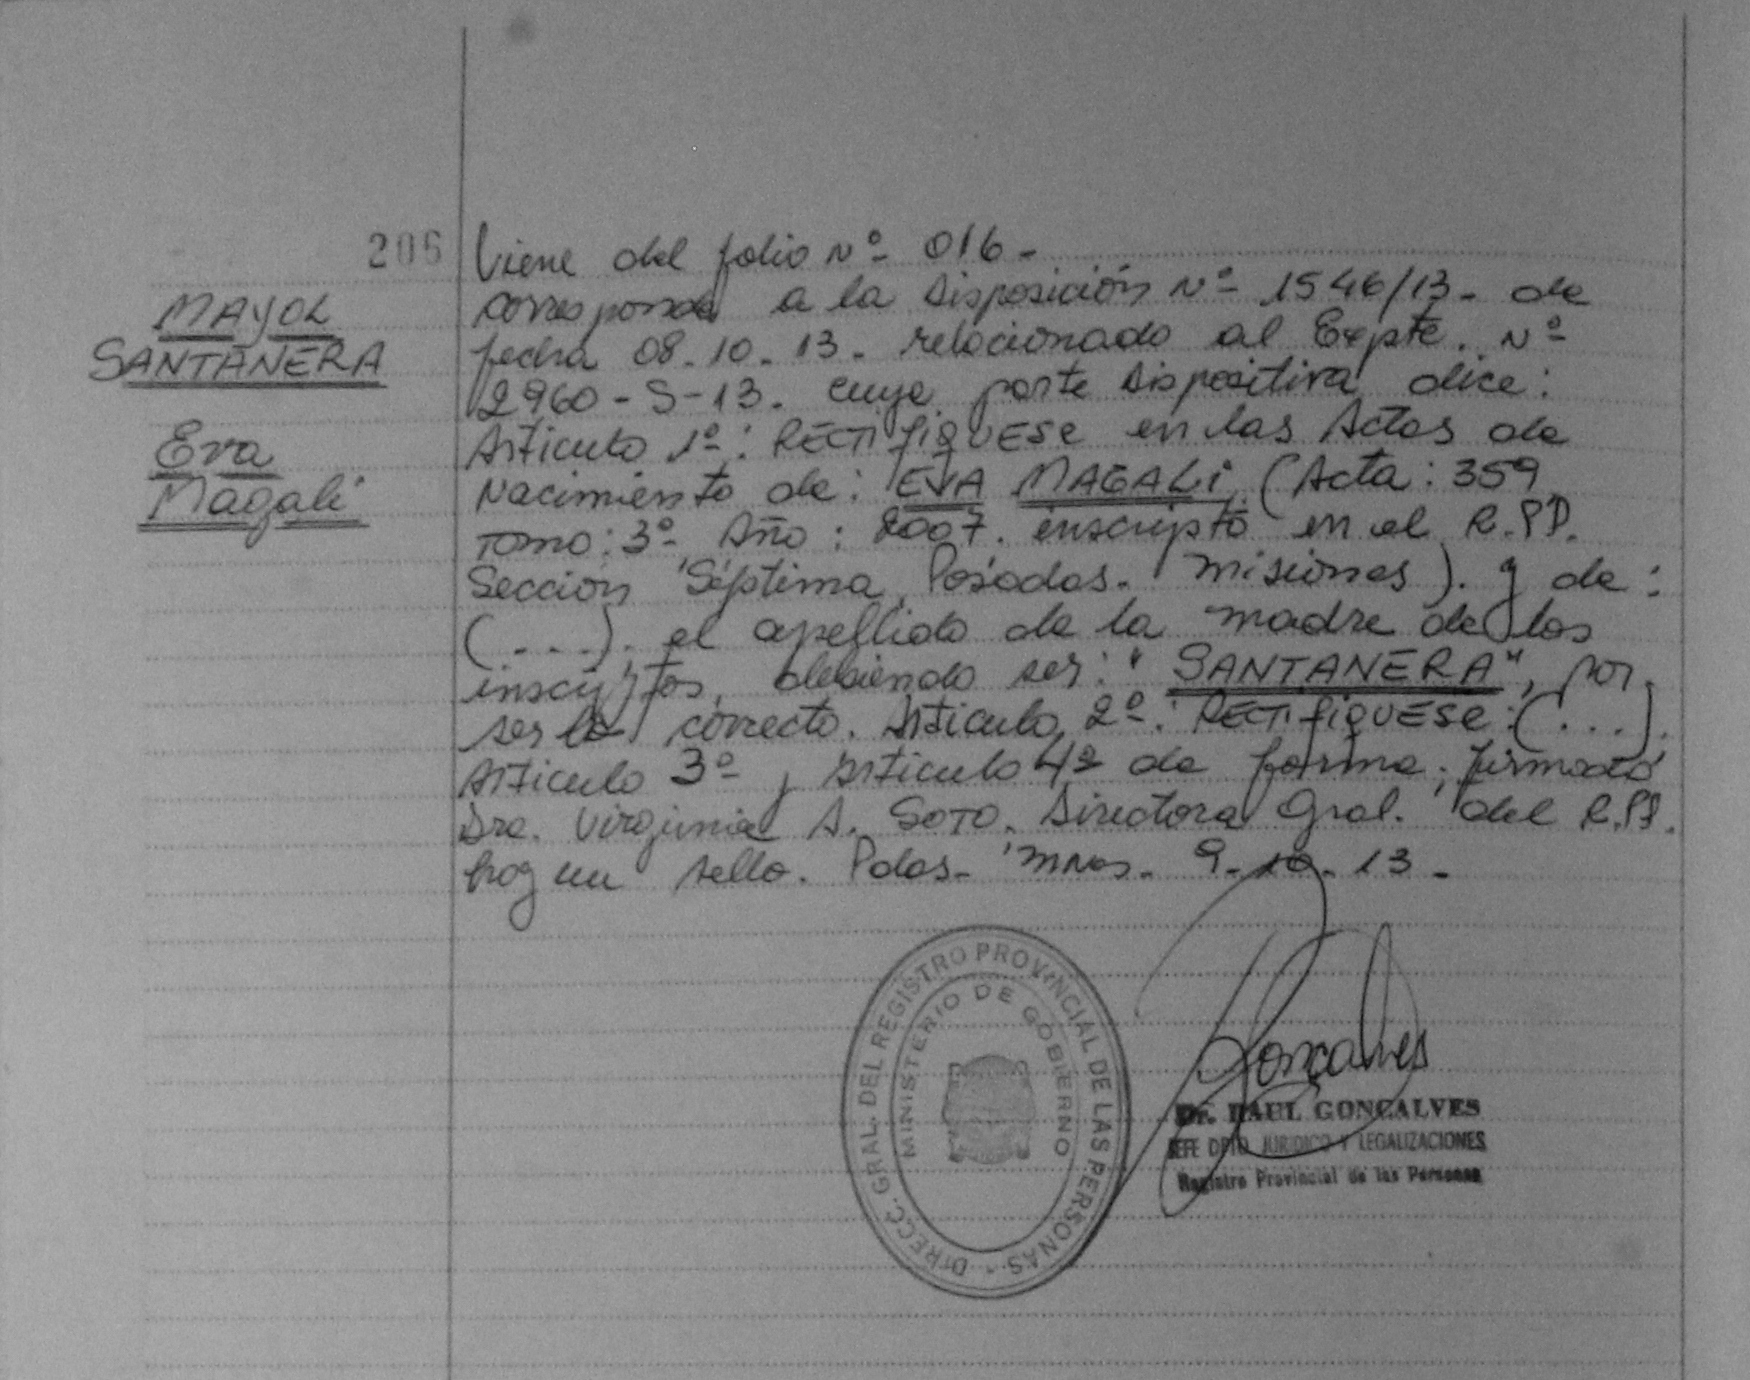 206
MAYOL
SANTANERA
Eva
Magali
Viene del folio Nº 016-
corresponde a la Disposición Nº 1546/13- de
fecha 08-10-13- relacionado al Expte. Nº
2960-S-13. cuya parte dispositiva dice:
Artículo 1º: RECTifiQUESE en las Actas de
Nacimiento de: EVA MAGALi (Acta: 359
Tomo: 3º Año: 2007. inscripta en el R.P.P.
Sección Séptima, Posadas- Misiones). y de:
(...). el apellido de la madre de los
inscriptos, debiendo ser: "SANTANERA", por
ser lo correcto. Artículo 2º: RECTifiQUESE: (...).
Artículo 3º y Artículo 4º de forma. firmado
Dra. Virginia A. SOTO. Directora Gral. del R.P.P.
hay un sello. Pdas- Mnes- 9-10-13-
DIRECC. GRAL. DEL REGISTRO PROVINCIAL DE LAS PERSONAS -
MINISTERIO DE GOBIERNO
Goncalves
Dr. RAUL GONCALVES
JEFE DPTO. JURIDICO Y LEGALIZACIONES
Registro Provincial de las Personas